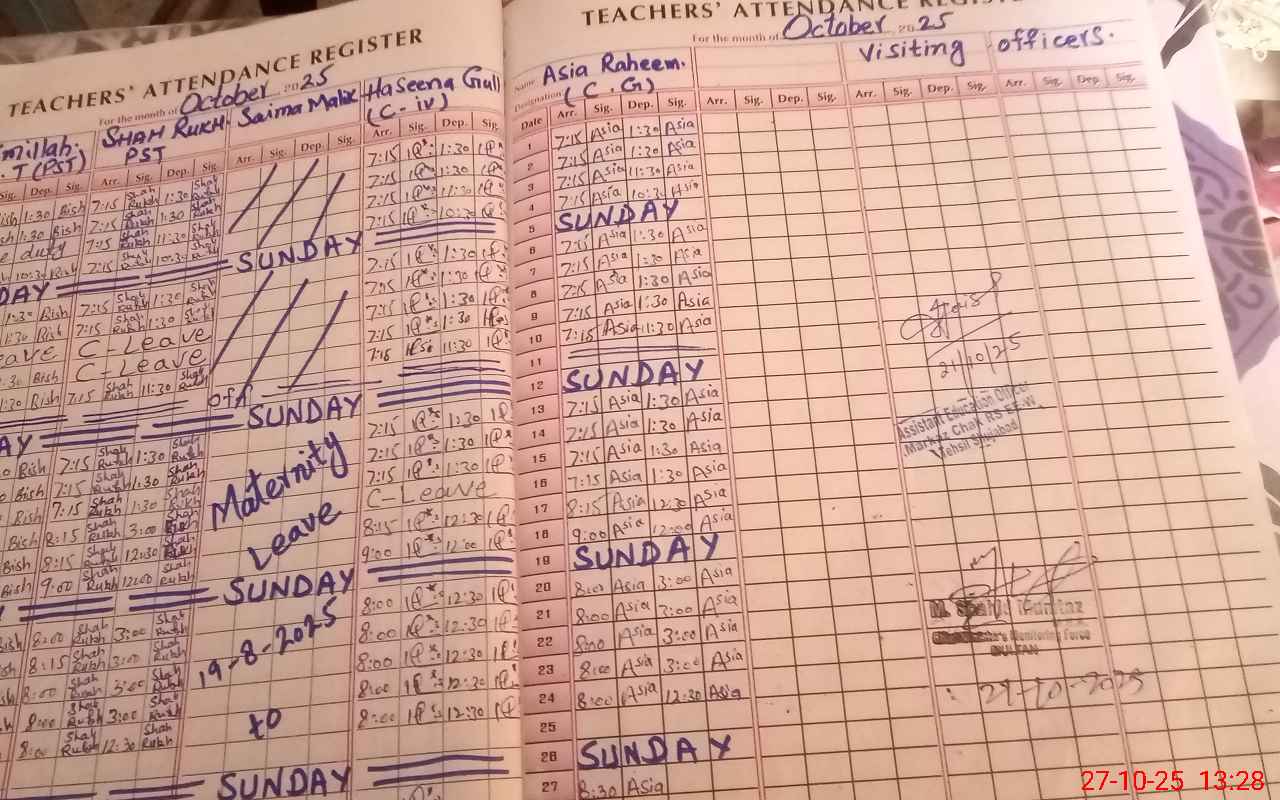 TEACHERS' ATTENDANCE REGISTER
For the month of October 2025
millah. SHAH RUKH. Saima Malik Haseena Gull
T (PST) PST (C-iv)
Sig. Dep. Sig. Arr. Sig. Dep. Sig. Arr. Sig. Dep. Sig. Arr. Sig. Dep. Sig.
1:30 Bish 7:15 Shah Rukh 1:30 Shah Rukh 7:15 1:30
1:30 Bish 7:15 Shah Rukh 1:30 Shah Rukh 7:15 1:30
duty 7:15 Shah Rukh 11:30 Shah Rukh 7:15 11:30
10:30 Bish 7:15 Shah Rukh 10:30 Shah Rukh 7:15 10:30
DAY SUNDAY
1:30 Bish 7:15 Shah Rukh 1:30 Shah Rukh 7:15 1:30
1:30 Bish 7:15 Shah Rukh 1:30 Shah Rukh 7:15 1:30
eave C-Leave 7:15 1:30
C-Leave 7:15 1:30
1:30 Bish 7:15 Shah Rukh 11:30 Shah Rukh 7:15 11:30
off
AY SUNDAY
Bish 7:15 Shah Rukh 1:30 Shah Rukh 7:15 1:30
Bish 7:15 Shah Rukh 1:30 Shah Rukh 7:15 1:30
Bish 7:15 Shah Rukh 1:30 Shah Rukh Maternity 7:15 1:30
Bish 8:15 Shah Rukh 3:00 Shah Rukh C-Leave
Bish 8:15 Shah Rukh 12:30 Shah Rukh Leave 8:15 12:30
Bish 9:00 Shah Rukh 12:00 Shah Rukh 9:00 12:00
SUNDAY
8:00 Shah Rukh 3:00 Shah Rukh 8:00 12:30
8:15 Shah Rukh 3:00 Shah Rukh 19-8-2025 8:00 12:30
8:00 Shah Rukh 3:00 Shah Rukh 8:00 12:30
8:00 Shah Rukh 3:00 Shah Rukh to 8:00 12:30
8:00 Shah Rukh 12:30 Shah Rukh 8:00 12:30
SUNDAY
TEACHERS' ATTENDANCE REGISTER
For the month of October 2025
Name Asia Raheem. Visiting officers.
Designation (C.G)
Date Arr. Sig. Dep. Sig. Arr. Sig. Dep. Sig. Arr. Sig. Dep. Sig. Arr. Sig. Dep. Sig.
1 7:15 Asia 1:30 Asia
2 7:15 Asia 1:30 Asia
3 7:15 Asia 11:30 Asia
4 7:15 Asia 10:30 Asia
5 SUNDAY
6 7:15 Asia 1:30 Asia
7 7:15 Asia 1:30 Asia
8 7:15 Asia 1:30 Asia
9 7:15 Asia 1:30 Asia
10 7:15 Asia 11:30 Asia
11
21/10/25
12 SUNDAY
13 7:15 Asia 1:30 Asia
Assistant Education Officer
14 7:15 Asia 1:30 Asia
Markaz Chak RS EE-W
15 7:15 Asia 1:30 Asia
Tehsil Shujabad
16 7:15 Asia 1:30 Asia
17 8:15 Asia 12:30 Asia
18 9:00 Asia 12:00 Asia
19 SUNDAY
20 8:00 Asia 3:00 Asia
21 8:00 Asia 3:00 Asia
22 8:00 Asia 3:00 Asia
Monitoring Force
MULTAN
23 8:00 Asia 3:00 Asia
24 8:00 Asia 12:30 Asia
27-10-2025
25
26 SUNDAY
27 8:30 Asia
27-10-25 13:28